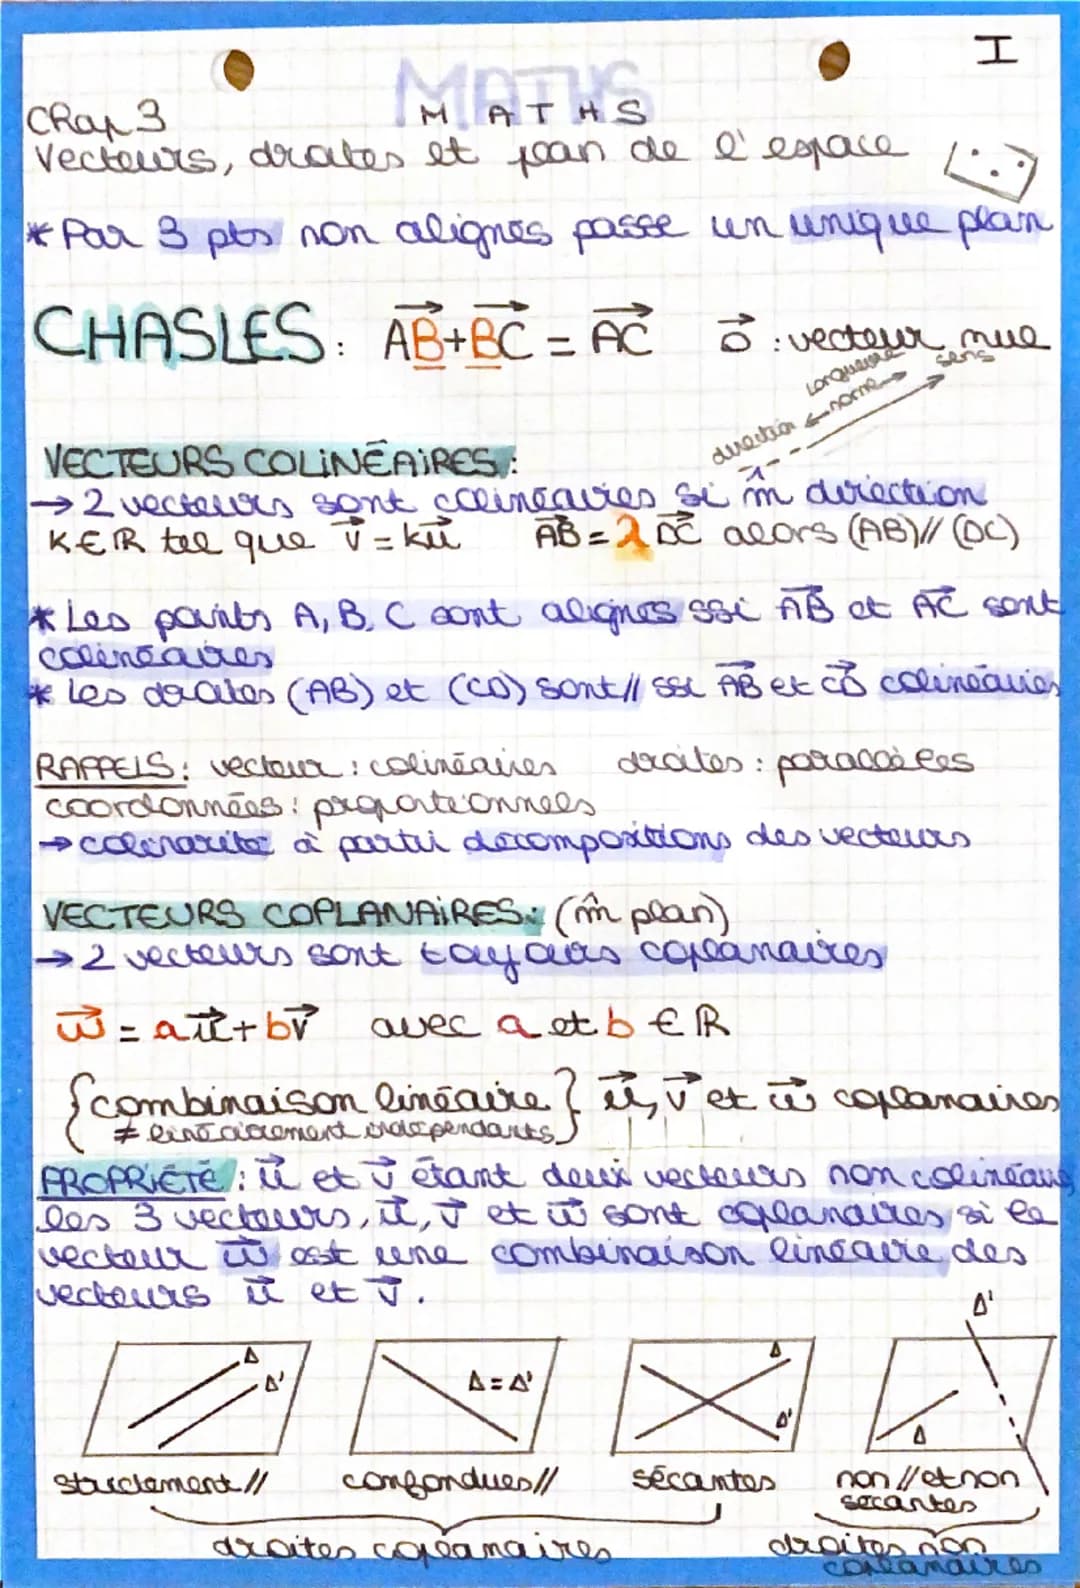 I
MATHS
Chap 3 MATHS
Vecteurs, droites et plan de l'espace
* Par 3 pts non alignés passe un unique plan
CHASLES : AB⃗ + BC⃗ = AC⃗ 0⃗ : vecteur nul
longueur sens
direction ← norme →
VECTEURS COLINÉAIRES :
→ 2 vecteurs sont colinéaires si m̂ direction
K ∈ ℝ tel que v⃗ = ku⃗ AB⃗ = λ DC⃗ alors (AB) // (DC)
* Les points A, B, C sont alignés ssi AB⃗ et AC⃗ sont
colinéaires
* Les droites (AB) et (CD) sont // ssi AB⃗ et CD⃗ colinéaires
RAPPELS : vecteur : colinéaires droites : parallèles
coordonnées : proportionnels
→ colinarité à partir décompositions des vecteurs
VECTEURS COPLANAIRES : (m̂ plan)
→ 2 vecteurs sont toujours coplanaires
w⃗ = au⃗ + bv⃗ avec a et b ∈ ℝ
{combinaison linéaire} u⃗, v⃗ et w⃗ coplanaires
≠ linéairement indépendants
PROPRIÉTÉ : u⃗ et v⃗ étant deux vecteurs non colinéaires
les 3 vecteurs, u⃗, v⃗ et w⃗ sont coplanaires si le
vecteur w⃗ est une combinaison linéaire des
vecteurs u⃗ et v⃗.
Δ Δ' Δ = Δ' Δ Δ' Δ Δ'
strictement // confondues // sécantes non // et non
sécantes
droites coplanaires droites non
coplanaires